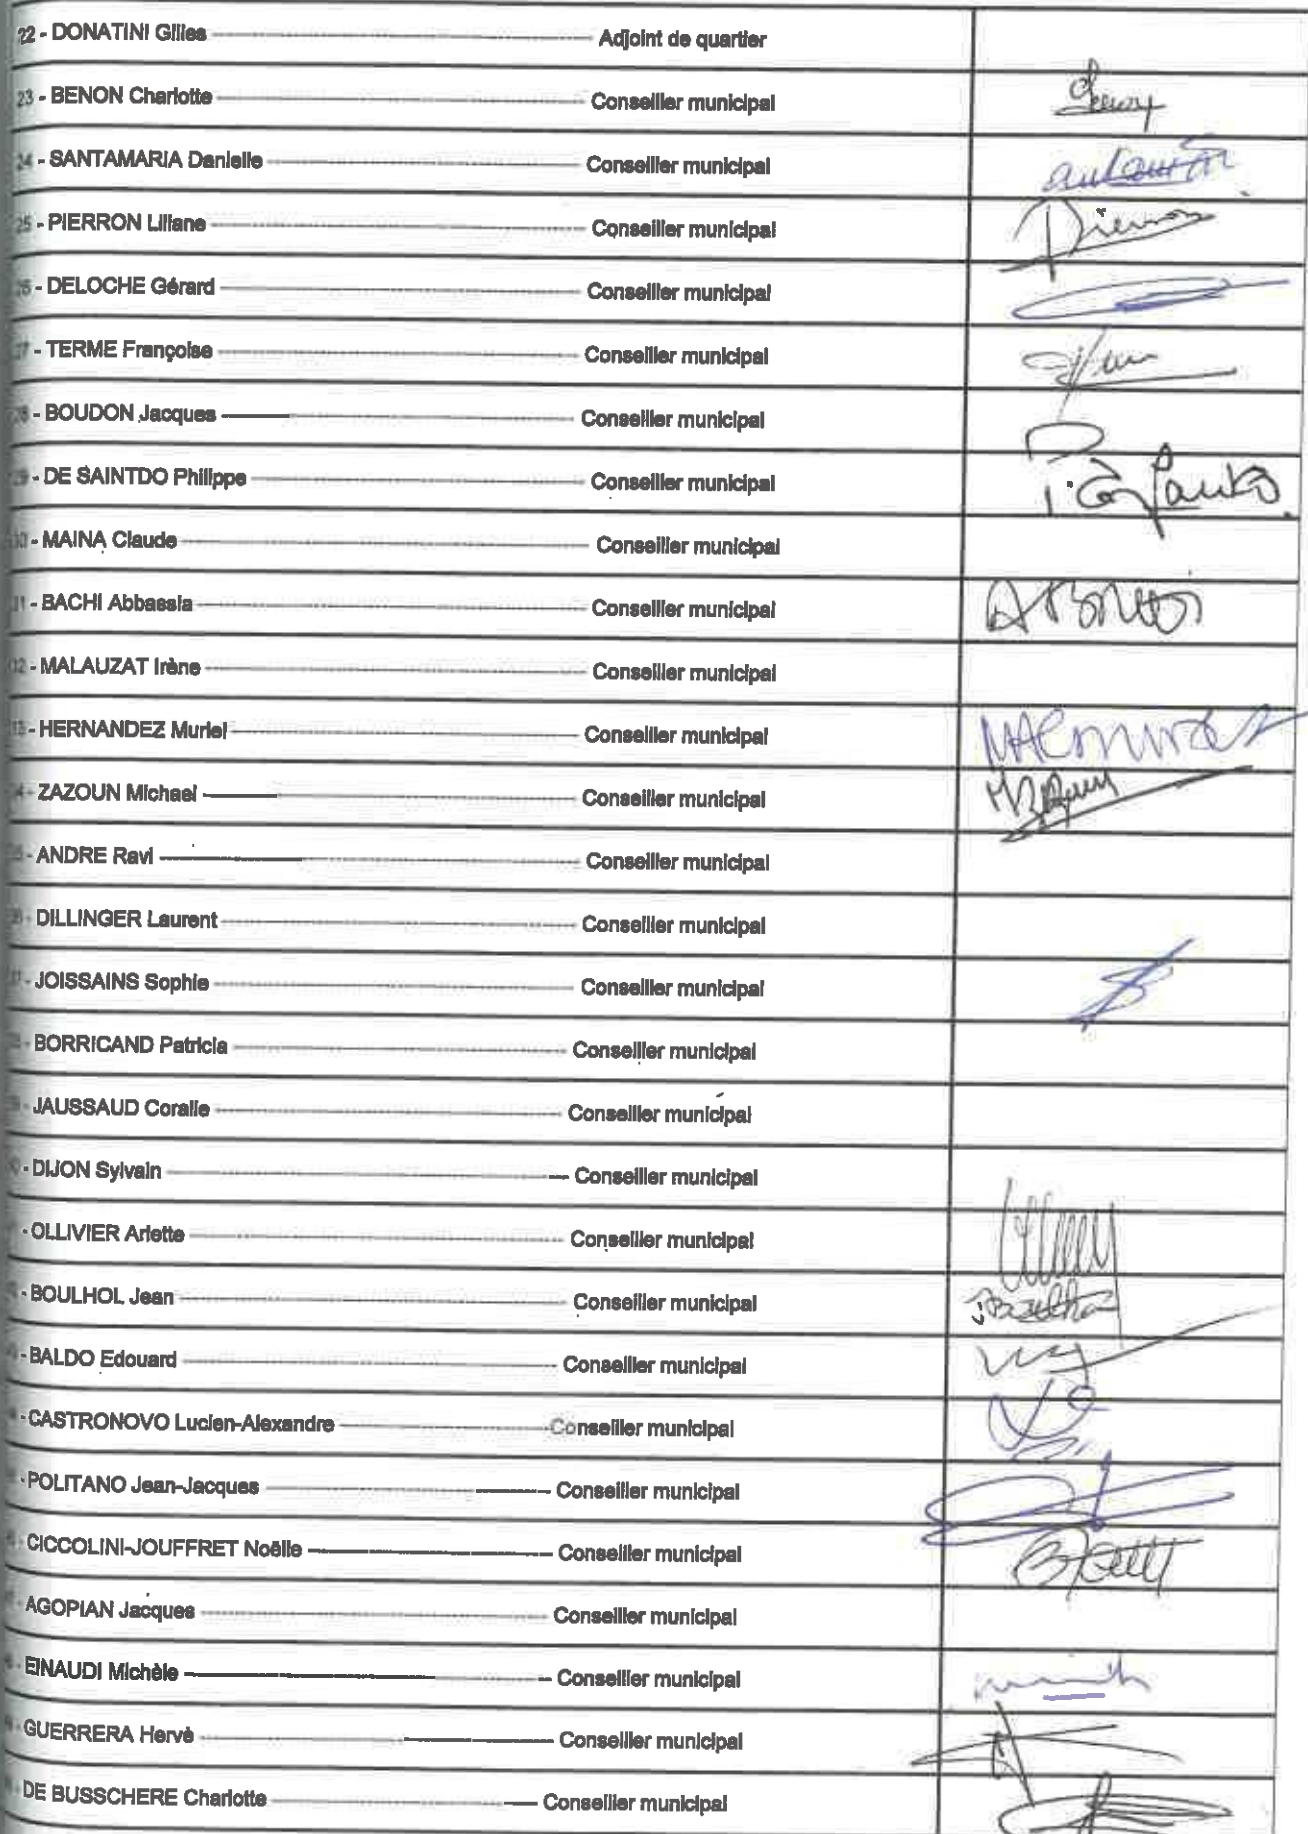 22 - DONATINI Gilles Adjoint de quartier
23 - BENON Charlotte Conseiller municipal
24 - SANTAMARIA Danielle Conseiller municipal
25 - PIERRON Liliane Conseiller municipal
26 - DELOCHE Gérard Conseiller municipal
27 - TERME Françoise Conseiller municipal
28 - BOUDON Jacques Conseiller municipal
29 - DE SAINTDO Philippe Conseiller municipal
30 - MAINA Claude Conseiller municipal
31 - BACHI Abbassia Conseiller municipal
32 - MALAUZAT Irène Conseiller municipal
33 - HERNANDEZ Muriel Conseiller municipal
- ZAZOUN Michael Conseiller municipal
- ANDRE Ravi Conseiller municipal
- DILLINGER Laurent Conseiller municipal
- JOISSAINS Sophie Conseiller municipal
- BORRICAND Patricia Conseiller municipal
- JAUSSAUD Coralie Conseiller municipal
- DIJON Sylvain Conseiller municipal
- OLLIVIER Arlette Conseiller municipal
- BOULHOL Jean Conseiller municipal
- BALDO Edouard Conseiller municipal
- CASTRONOVO Lucien-Alexandre Conseiller municipal
- POLITANO Jean-Jacques Conseiller municipal
- CICCOLINI-JOUFFRET Noëlle Conseiller municipal
AGOPIAN Jacques Conseiller municipal
- EINAUDI Michèle Conseiller municipal
- GUERRERA Hervé Conseiller municipal
- DE BUSSCHERE Charlotte Conseiller municipal